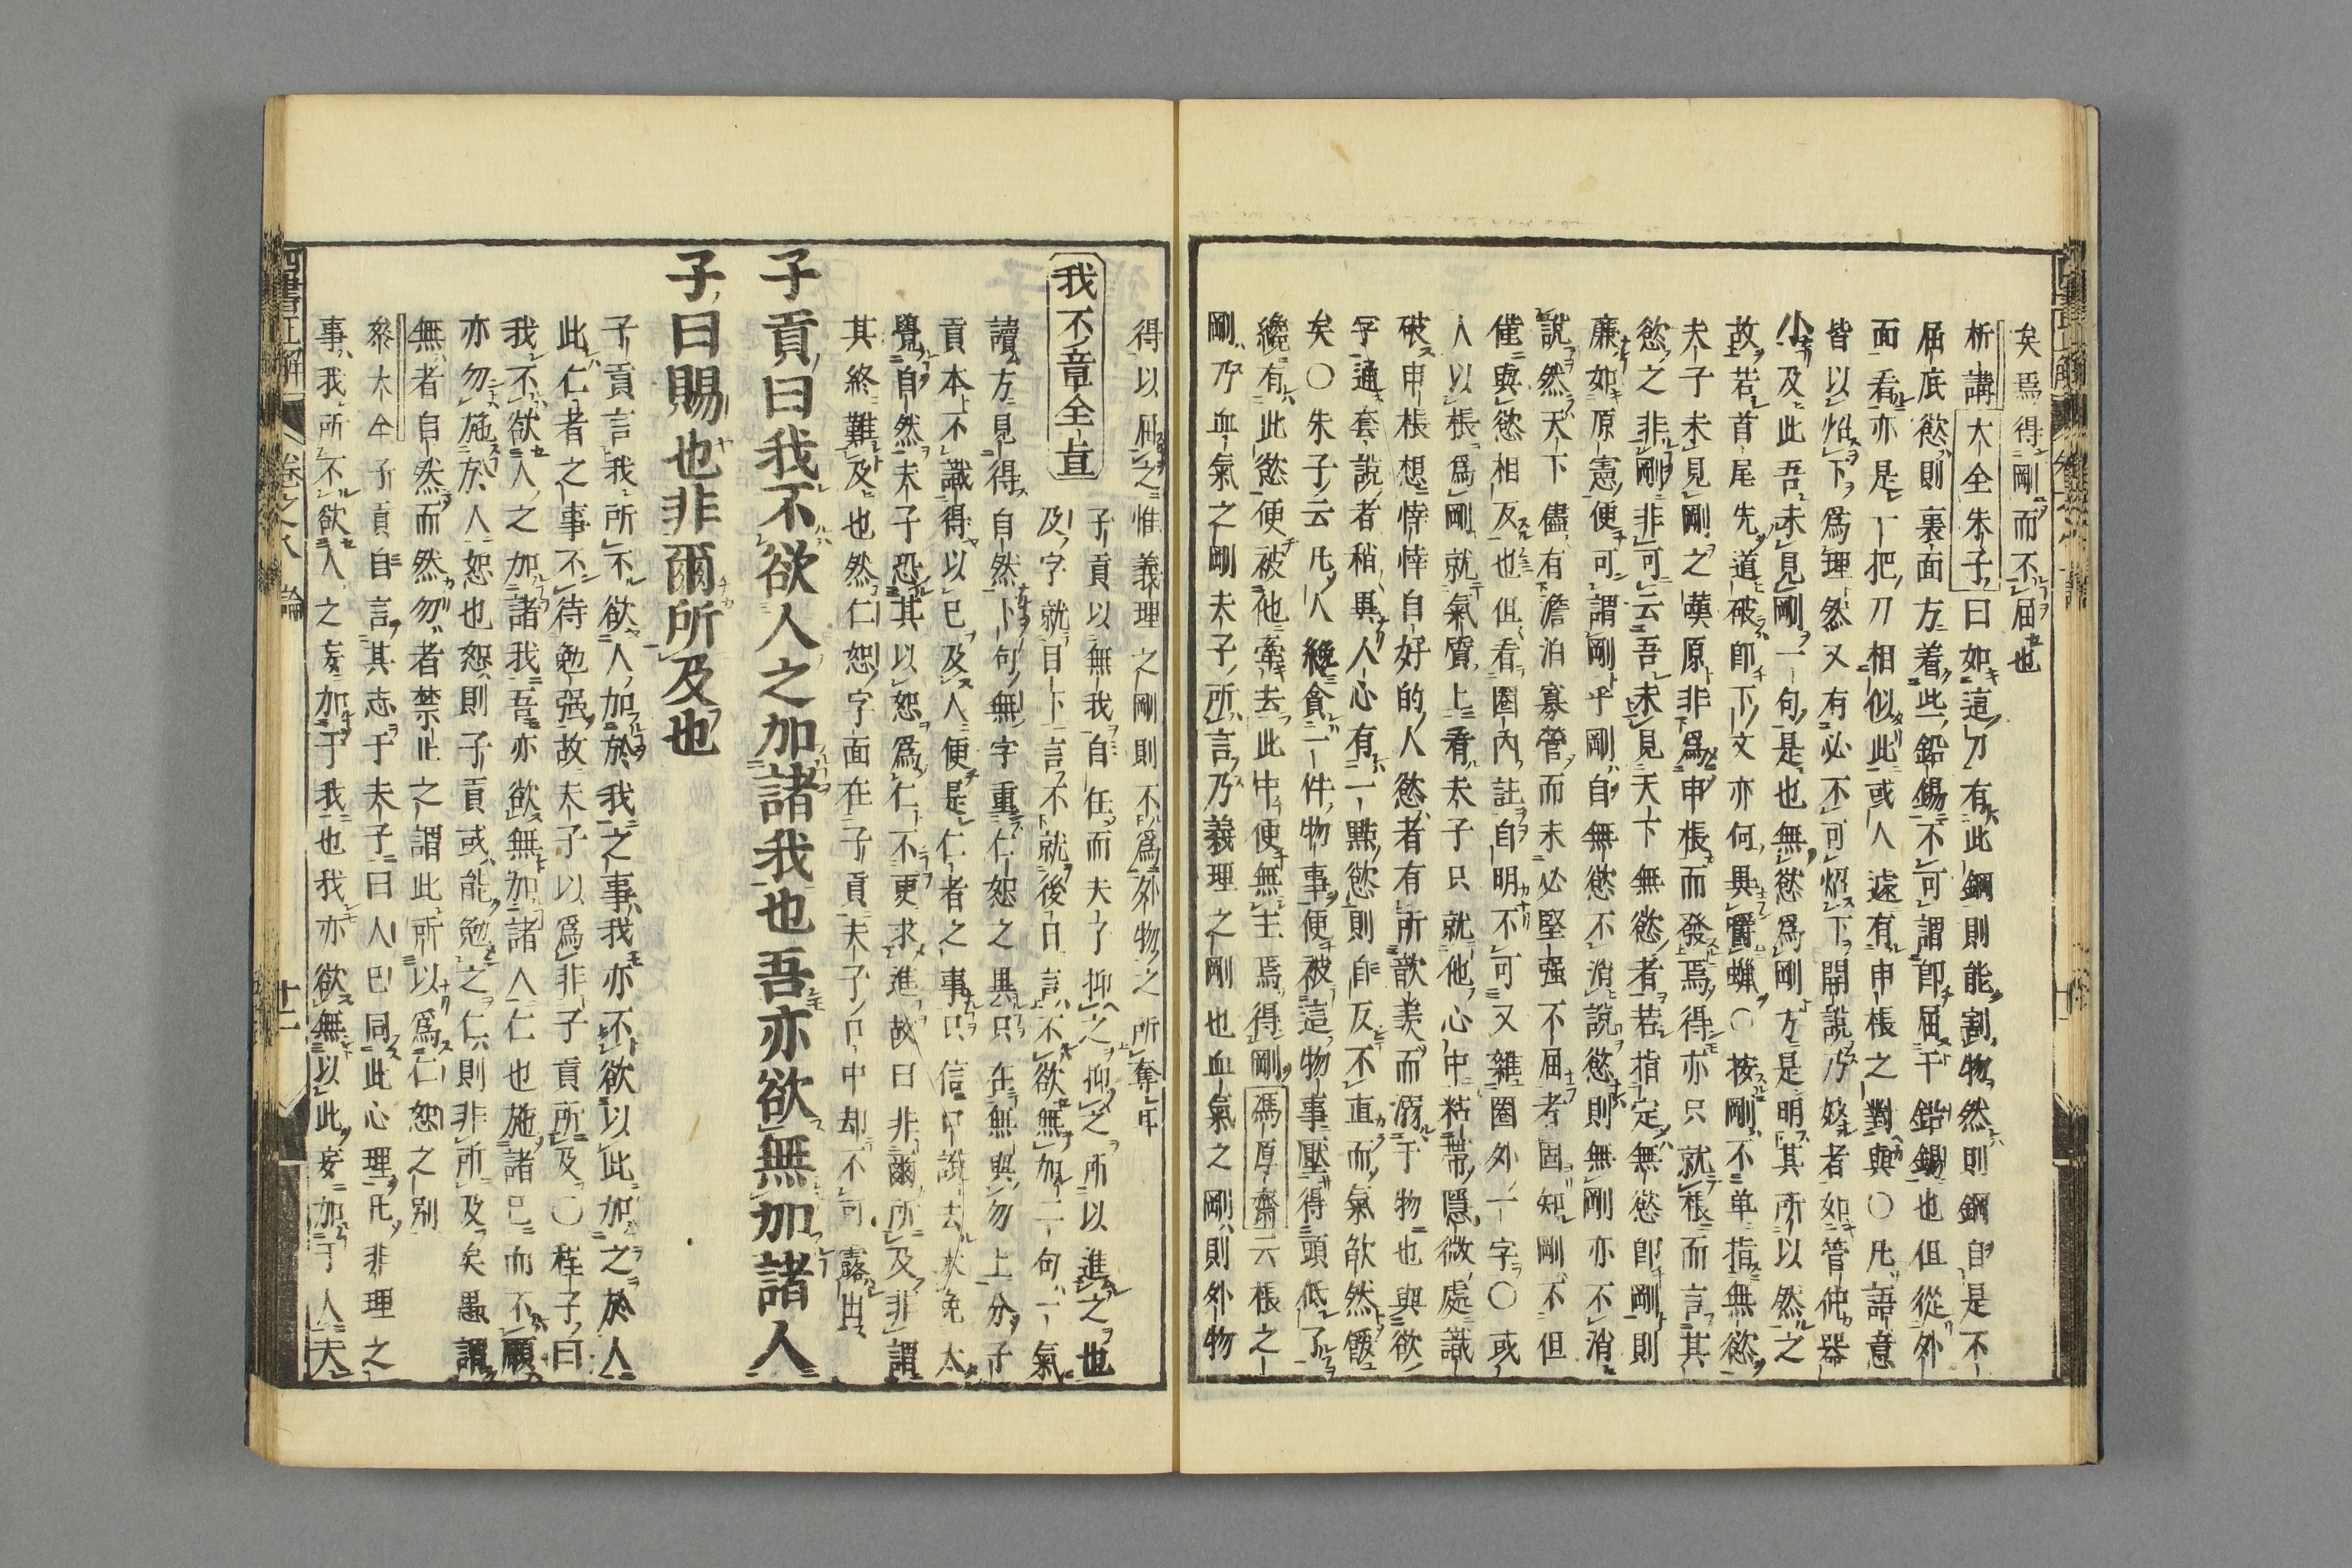 矣焉得剛而不屈也
析講大全朱子曰如這刀有此鋼則能割物然則鋼自是不
屈底慾則裏面方着些鉛錫不可謂即屈于鉛錫也但從外
面看亦是一把刀相似此或人遽有申棖之對與〇凡語意
皆以炤下爲理然又有必不可炤下開說乃妙者如管仲器
小及此吾未見剛一句是也無慾爲剛方是明其所以然之
故若首尾先道破即下文亦何異嚼蠟〇按剛不单指無慾
夫子未見剛之嘆原非爲申棖而發焉得亦只就棖而言其
慾之非剛非可云吾未見天下無慾者若指定無慾即剛則
廉如原憲便可謂剛乎剛自無慾不消說慾則無剛亦不消
說然天下儘有澹泊寡營而未必堅强不屈者固知剛不但
僅與慾相反也但看圈内註自明不可又雜圈外一字〇或
人以棖爲剛就氣質上看夫子只就他心中粘帶隱微處識
破申棖想悻悻自好的人慾者有所歆羨而溺于物也與欲
字通套說者稍與人心有一點慾則自反不直而氣欿然餒
矣〇朱子云凡人纔貪一件物事便被這物事壓得頭低了
纔有此慾便被他牽去此中便無主焉得剛馮厚齋云棖之
剛乃血氣之剛夫子所言乃義理之剛也血氣之剛則外物
得以屈之惟義理之剛則不爲外物之所奪耳
我不章全旨
子貢以無我自任而夫子抑之抑之所以進之也
及字就目下言不就後日言不欲無加二句一氣
讀方見得自然下句無字重仁恕之異只在無與勿上分子
貢本不識得以己及人便是仁者之事只信口說去未免太
覺自然夫子恐其以恕爲仁不更求進故曰非爾所及非謂
其終難及也然仁恕字面在子貢夫子口中却不可露出
子貢曰我不欲人之加諸我也吾亦欲無加諸人
子曰賜也非爾所及也
子貢言我所不欲人加於我之事我亦不欲以此加之於人
此仁者之事不待勉强故夫子以爲非子貢所及〇程子曰
我不欲人之加諸我吾亦欲無加諸人仁也施諸己而不願
亦勿施於人恕也恕則子貢或能勉之仁則非所及矣愚謂
無者自然而然勿者禁止之謂此所以爲仁恕之別
叅大全子貢自言其志于夫子曰人己同此心理凡非理之
事我所不欲人之妄加于我也我亦欲無以此妄加于人夫
四書正解
卷之八
論
十二